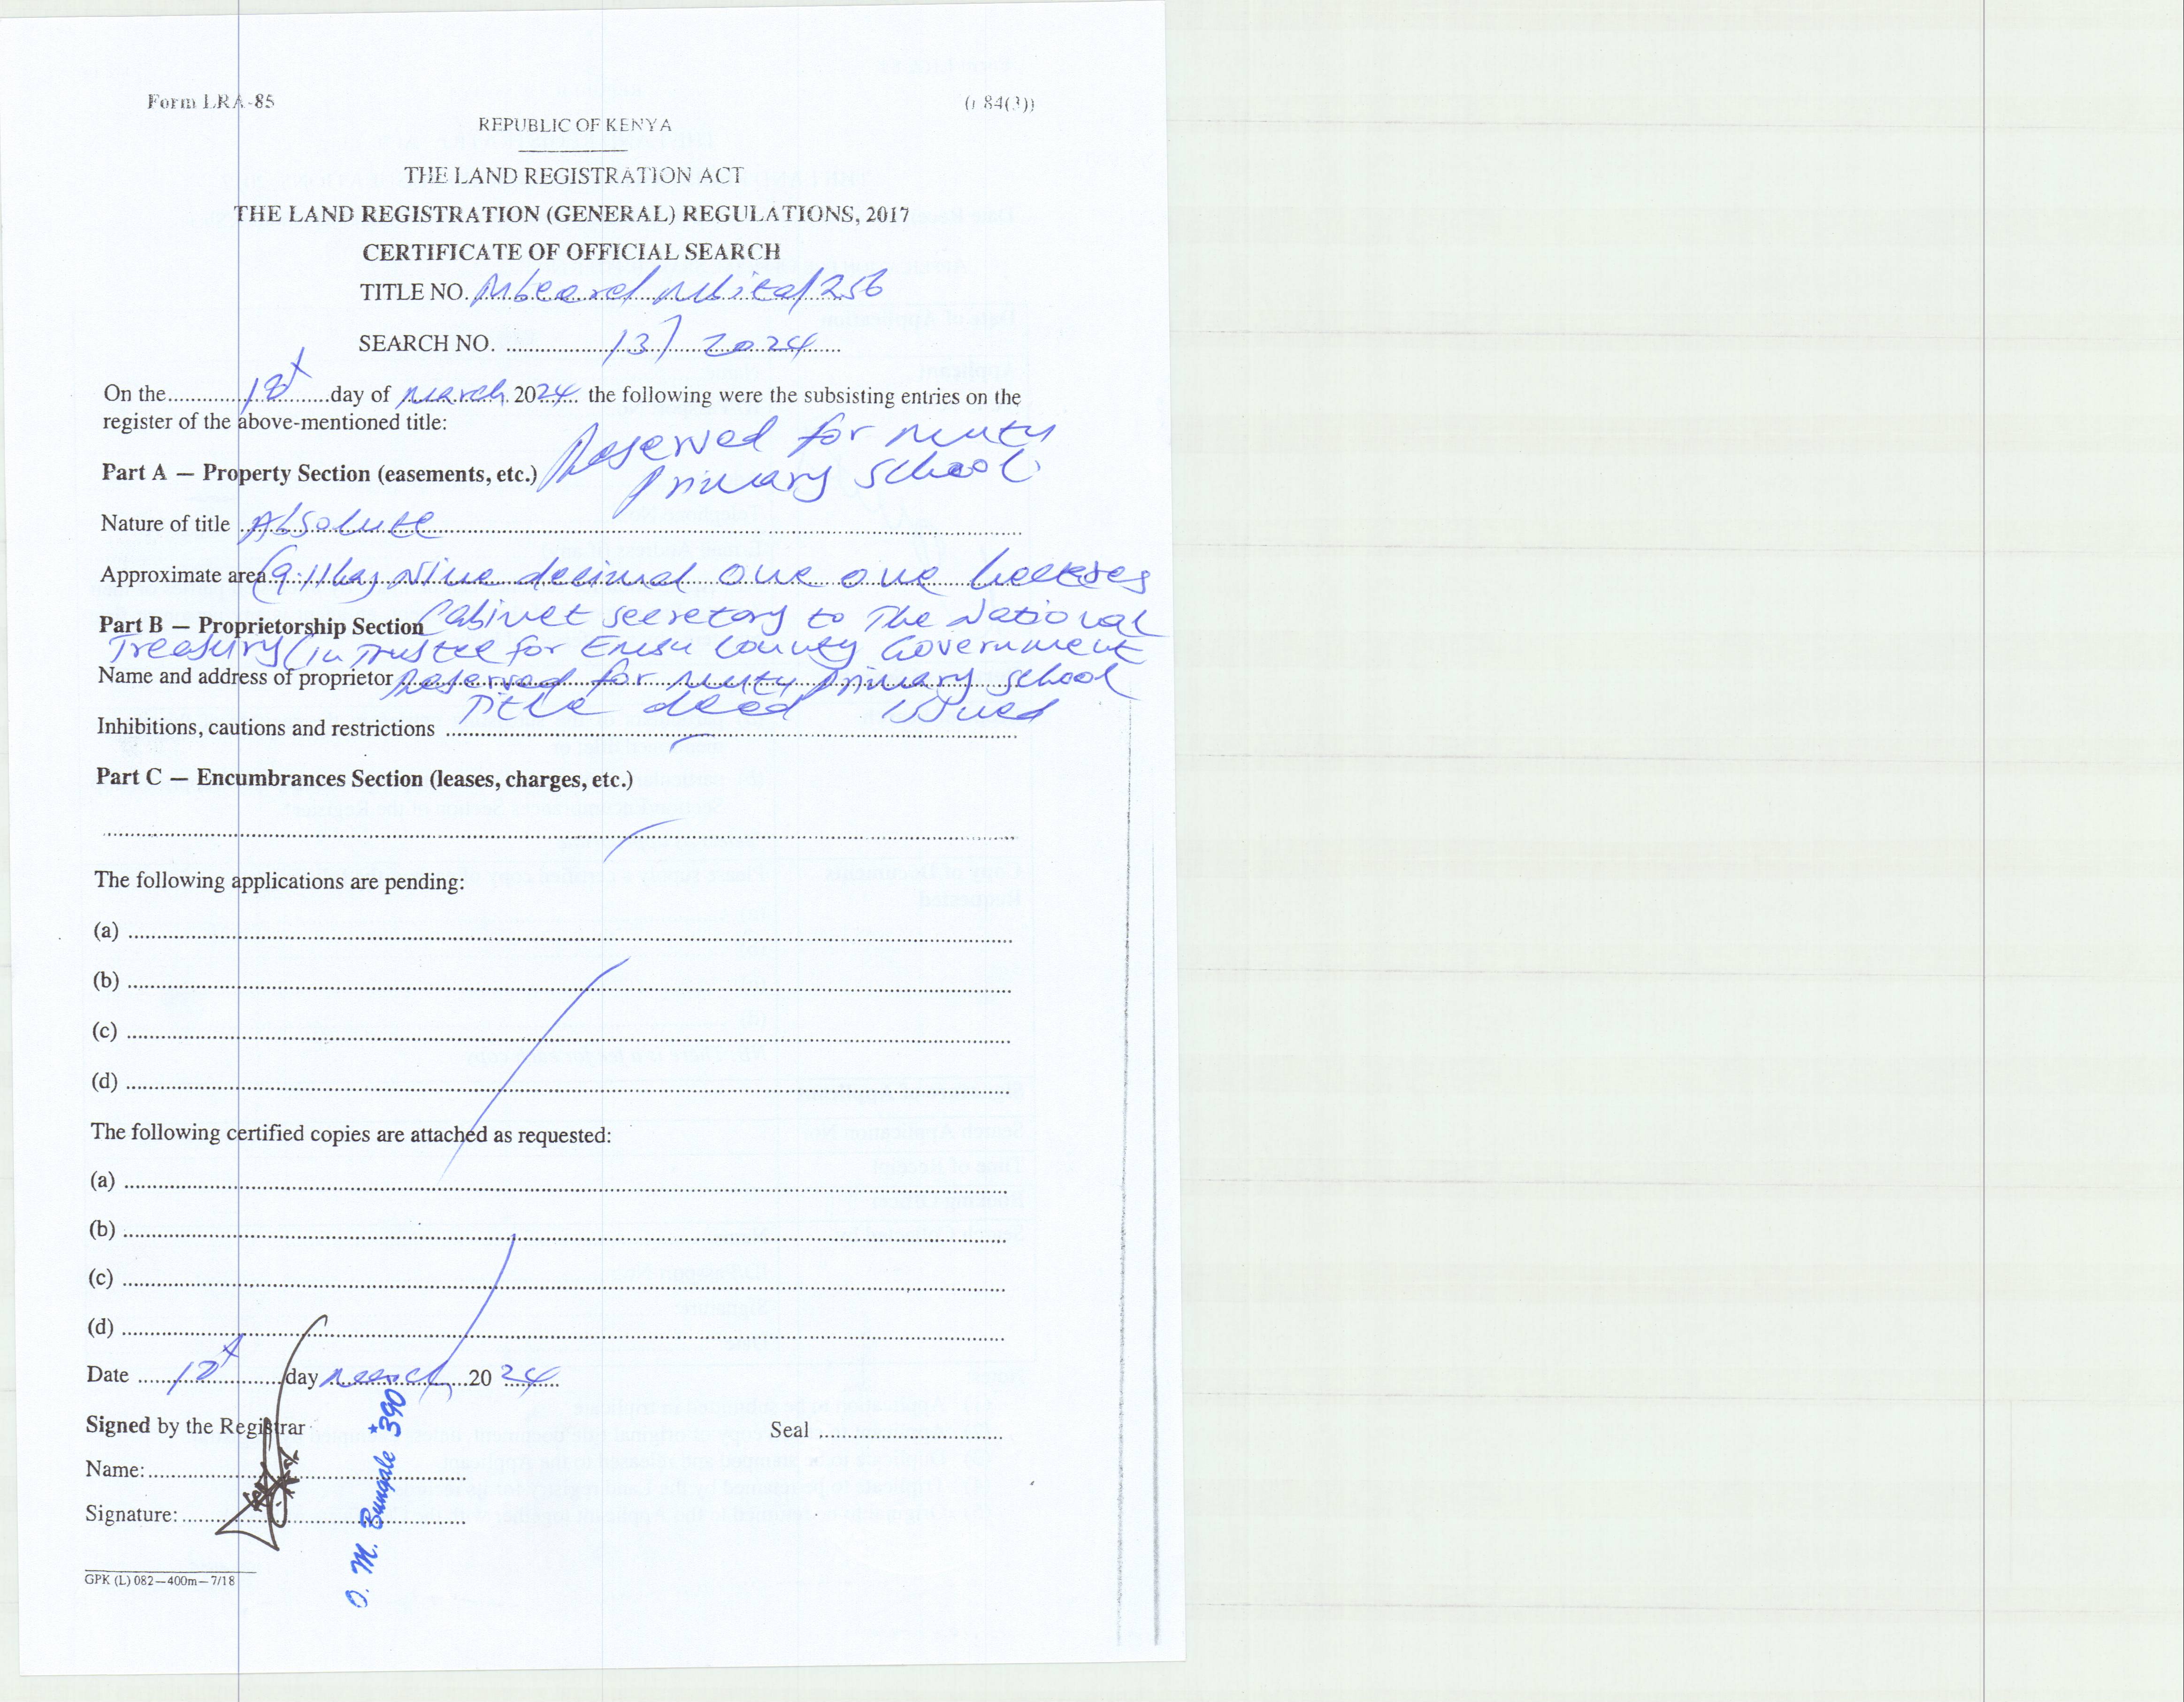 Form LRA-85
(r 84(3))
REPUBLIC OF KENYA
THE LAND REGISTRATION ACT
THE LAND REGISTRATION (GENERAL) REGULATIONS, 2017
CERTIFICATE OF OFFICIAL SEARCH
TITLE NO. Mbeere/ Mbita/256
SEARCH NO. 13/ 2024
On the 18th day of March 2024 the following were the subsisting entries on the
register of the above-mentioned title:
Part A — Property Section (easements, etc.) Reserved for Muty
Primary School
Nature of title Absolute
Approximate area (9.11ha) Nine decimal one one hectares
Part B — Proprietorship Section Cabinet secretary to The National
Treasury (in Trustee for Embu County Government
Name and address of proprietor Reserved for Muty primary school
Title deed issued
Inhibitions, cautions and restrictions
Part C — Encumbrances Section (leases, charges, etc.)
The following applications are pending:
(a)
(b)
(c)
(d)
The following certified copies are attached as requested:
(a)
(b)
(c)
(d)
Date 18th day March 20 24
Signed by the Registrar
Seal
Name:
Signature:
O. M. Bungale *390
GPK (L) 082—400m—7/18